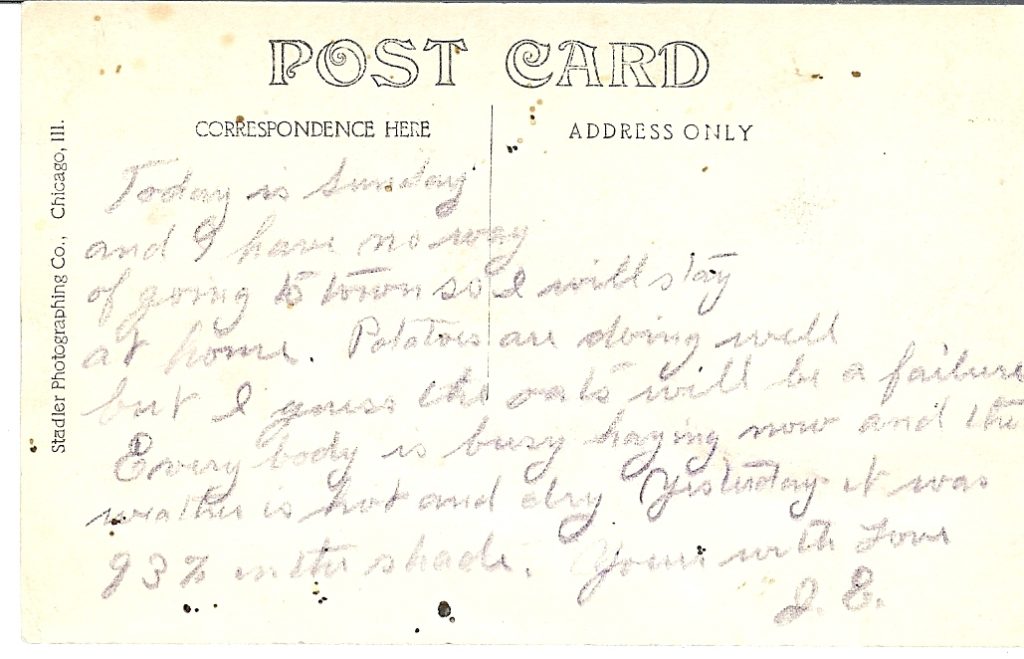 POST CARD
CORRESPONDENCE HERE
ADDRESS ONLY
Stadler Photographing Co., Chicago, Ill.
Today is Sunday
and I have no way
of going to town so I will stay
at home. Potatoes are doing well
but I guess the oats will be a failure
Every body is busy haying now and the
weather is hot and dry Yesterday it was
93% in the shade. Yours with Love
J. E.